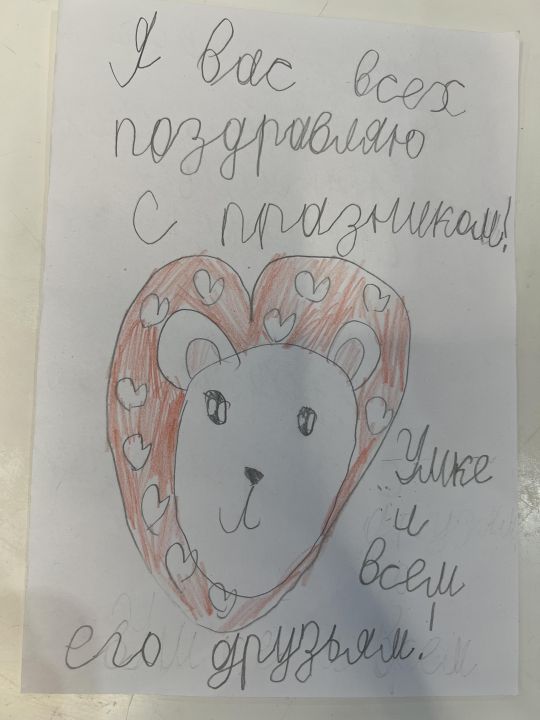 Я вас всех
поздравляю
с празником!
Умке
и
всем
его друзьям!